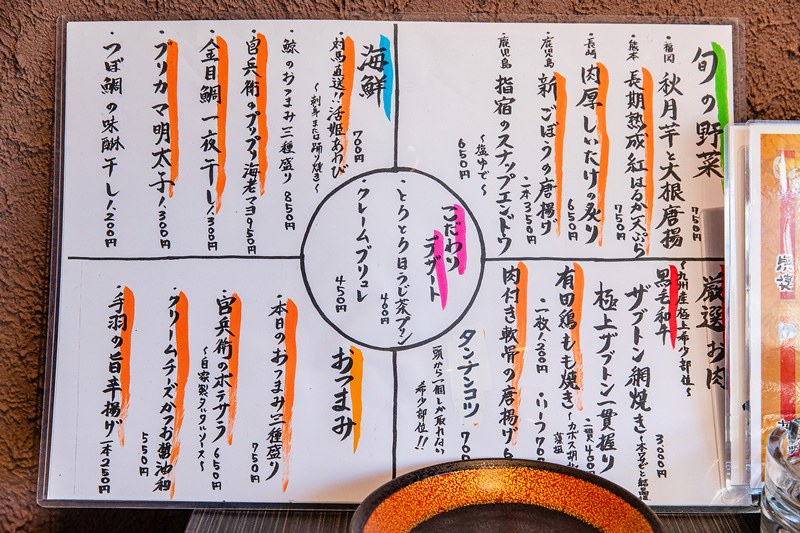 旬の野菜
・福岡 秋月芋と大根唐揚 750円
・熊本 長期熟成紅はるか天ぷら 750円
・長崎 肉厚しいたけの炙り 650円
・鹿児島 新ごぼうの唐揚げ 一本350円
・鹿児島 指宿のスナップエンドウ
〜塩ゆで〜 650円
海鮮
・対馬直送!!活姫あわび 700円
〜刺身または踊り焼き〜
・鯨のおつまみ三種盛り 850円
・官兵衛のプリプリ海老マヨ950円
・金目鯛一夜干し1,300円
・ブリカマ明太子1,300円
・つぼ鯛の味醂干し1,200円
こだわり
デザート
・とろとろほうじ茶プリン 400円
・クレームブリュレ 450円
厳選お肉
〜九州産極上希少部位〜
黒毛和牛
ザブトン網焼き 3,000円
極上ザブトン一貫握り
有田鶏もも焼き
・一枚1,200円 ・ハーフ70
肉付き軟骨の唐揚げ
タンナンコツ 70
一頭から一個しか取れない
希少部位!!
おつまみ
・本日のおつまみ三種盛り 750円
・官兵衛のポテサラ 650円
〜自家製タルタルソース〜
・クリームチーズかつお醤油和 550円
・手羽の旨辛揚げ 一本250円